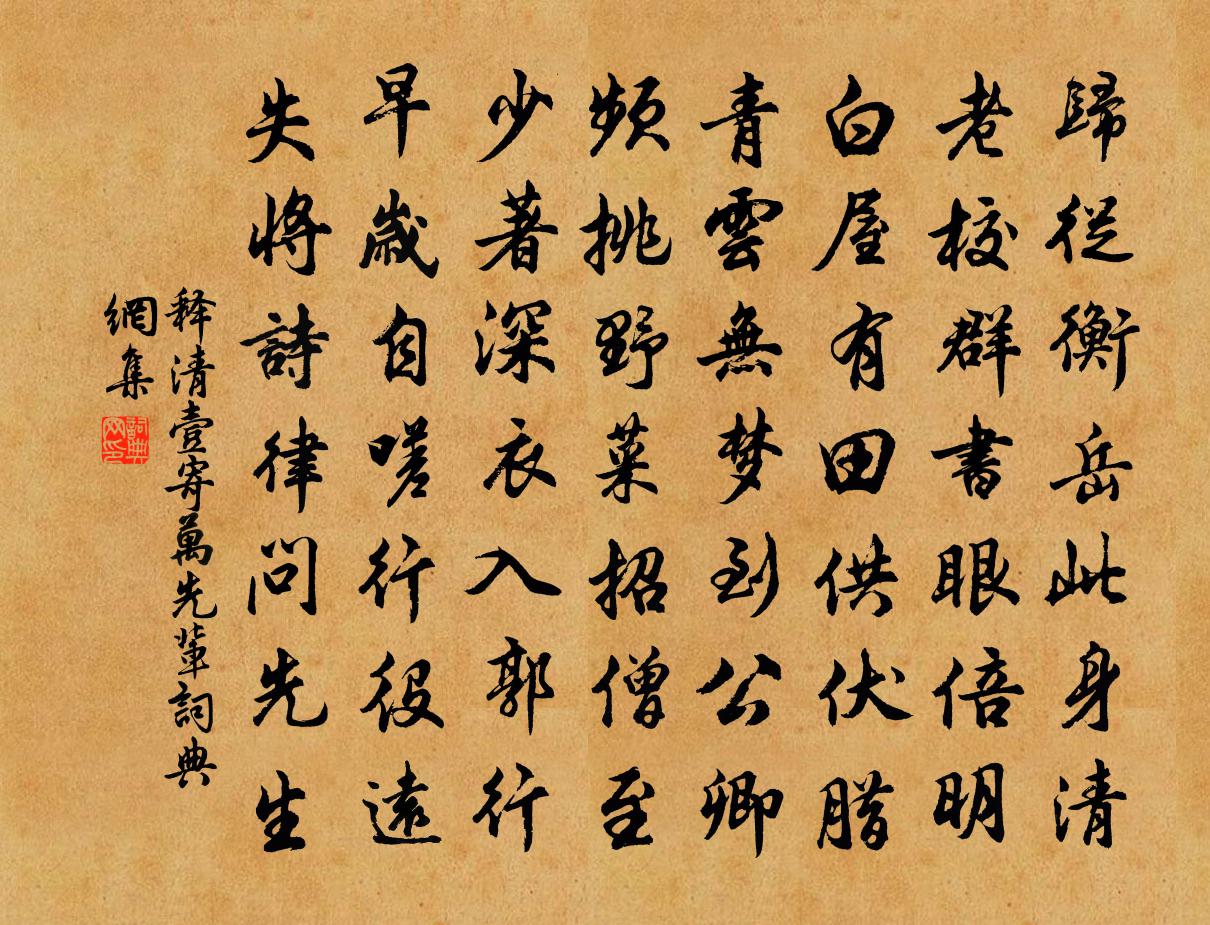 歸從衡岳此身清
老校群書眼倍明
白屋有田供伏腊
青雲無梦到公卿
頻挑野菜招僧至
少著深衣入郭行
早歲自嗟行役遠
失將詩律問先生
释清壹寄萬先輩詞典
網集
詞典网印